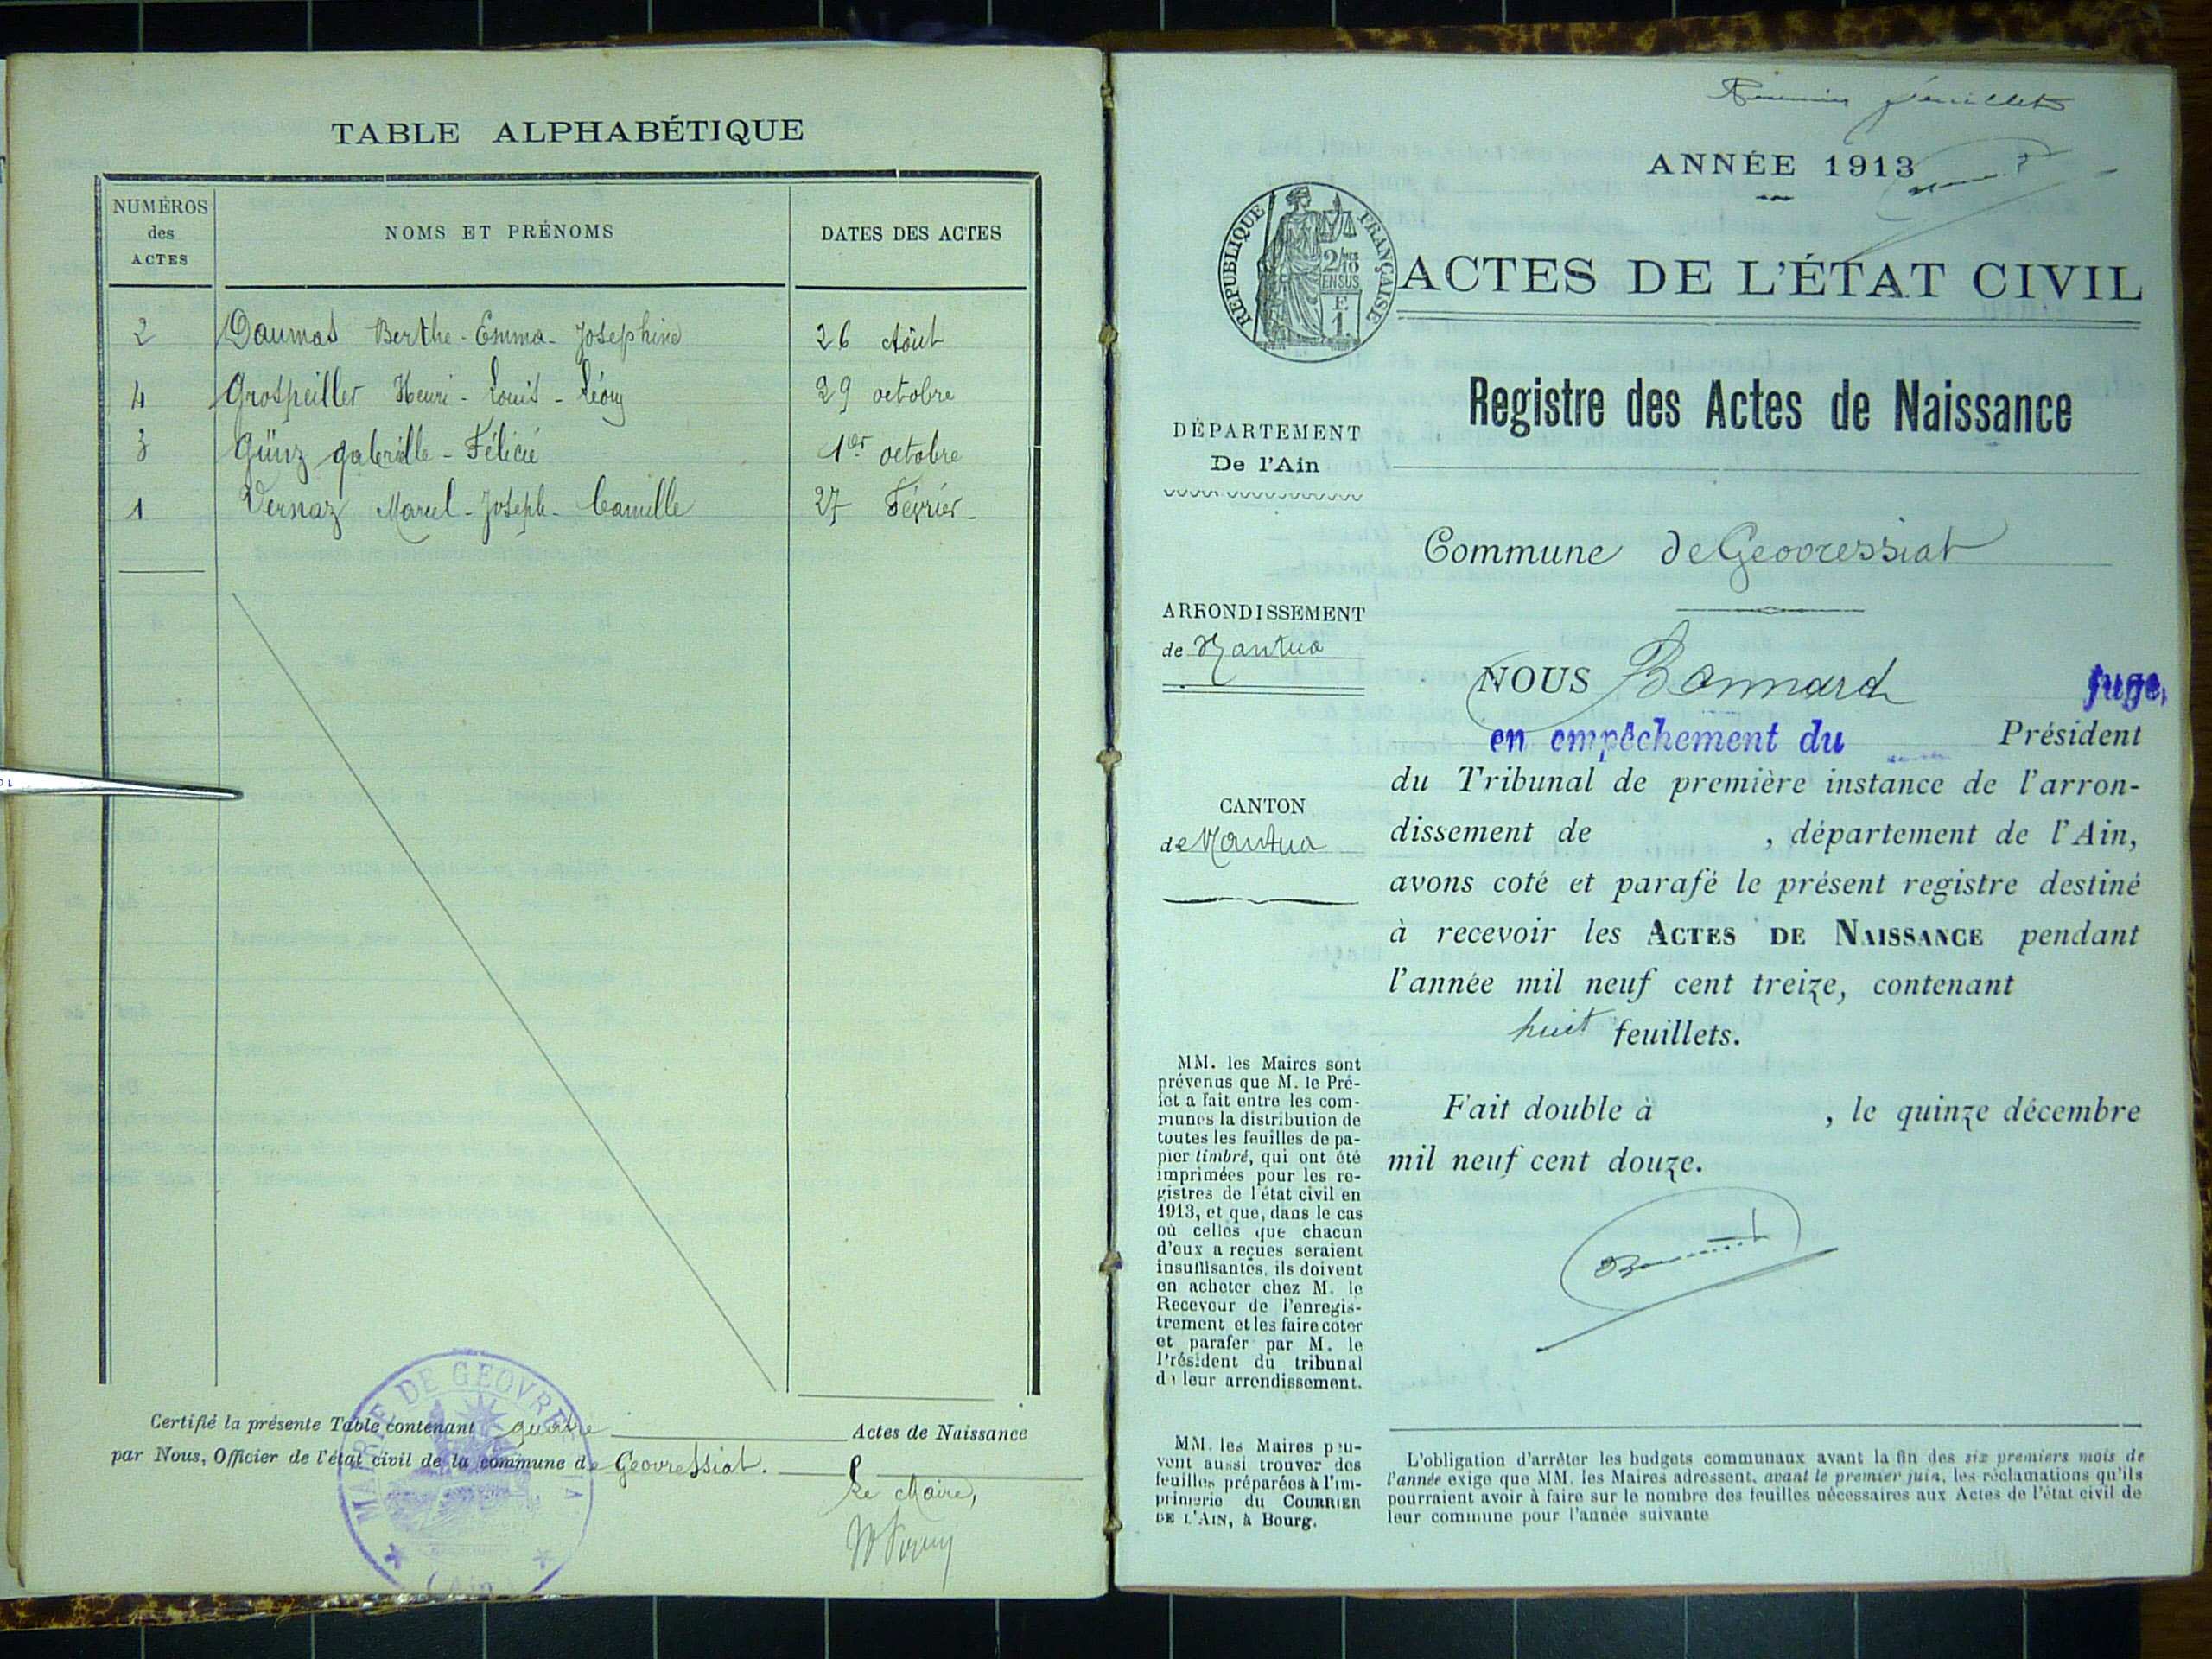 TABLE ALPHABÉTIQUE
NUMÉROS des ACTES
NOMS ET PRÉNOMS
DATES DES ACTES
2 Daumas Berthe-Emma-Josephine 26 Août
4 Grospeiller Henri-Louis-Léon 29 octobre
3 Günz gabrielle-Félicie 1er octobre
1 Vernaz Marcel-Joseph-Camille 27 Février
Certifié la présente Table contenant quatre Actes de Naissance
par Nous, Officier de l'état civil de la commune de Geovressiat.
Le Maire,
MAIRIE DE GEOVRE
(Ain)
Premier feuillet
ANNÉE 1913
REPUBLIQUE FRANÇAISE
2/10 EN SUS
F. 1.
ACTES DE L'ÉTAT CIVIL
Registre des Actes de Naissance
DÉPARTEMENT
De l'Ain
Commune de Geovressiat
ARRONDISSEMENT
de Nantua
CANTON
de Nantua
NOUS Bonnard juge,
en empêchement du Président
du Tribunal de première instance de l'arron-
dissement de , département de l'Ain,
avons coté et parafé le présent registre destiné
à recevoir les ACTES DE NAISSANCE pendant
l'année mil neuf cent treize, contenant
huit feuillets.
Fait double à , le quinze décembre
mil neuf cent douze.
MM. les Maires sont
prévenus que M. le Pré-
fet a fait entre les com-
munes la distribution de
toutes les feuilles de pa-
pier timbré, qui ont été
imprimées pour les re-
gistres de l'état civil en
1913, et que, dans le cas
où celles que chacun
d'eux a reçues seraient
insuffisantes, ils doivent
en acheter chez M. le
Receveur de l'enregis-
trement et les faire coter
et parafer par M. le
Président du tribunal
de leur arrondissement.
MM. les Maires peu-
vent aussi trouver des
feuilles préparées à l'im-
primerie du COURRIER
DE L'AIN, à Bourg.
L'obligation d'arrêter les budgets communaux avant la fin des six premiers mois de
l'année exige que MM. les Maires adressent, avant le premier juin, les réclamations qu'ils
pourraient avoir à faire sur le nombre des feuilles nécessaires aux Actes de l'état civil de
leur commune pour l'année suivante